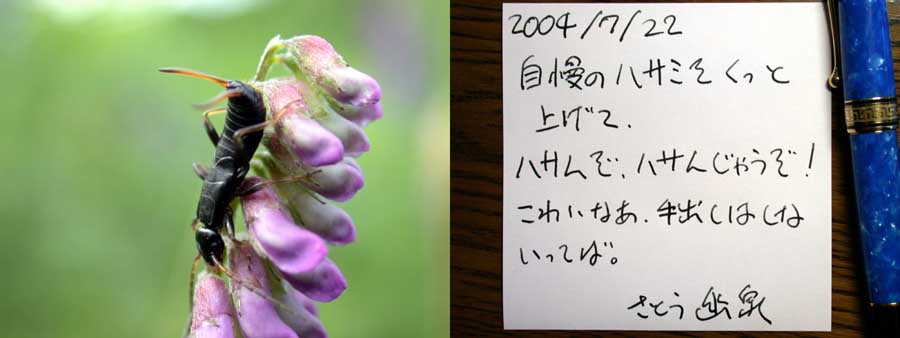 2004/7/22
自慢のハサミをくっと
上げて.
ハサムぞ、ハサんじゃうぞ!
こわいなあ、手出しはしな
いってば。
さとう